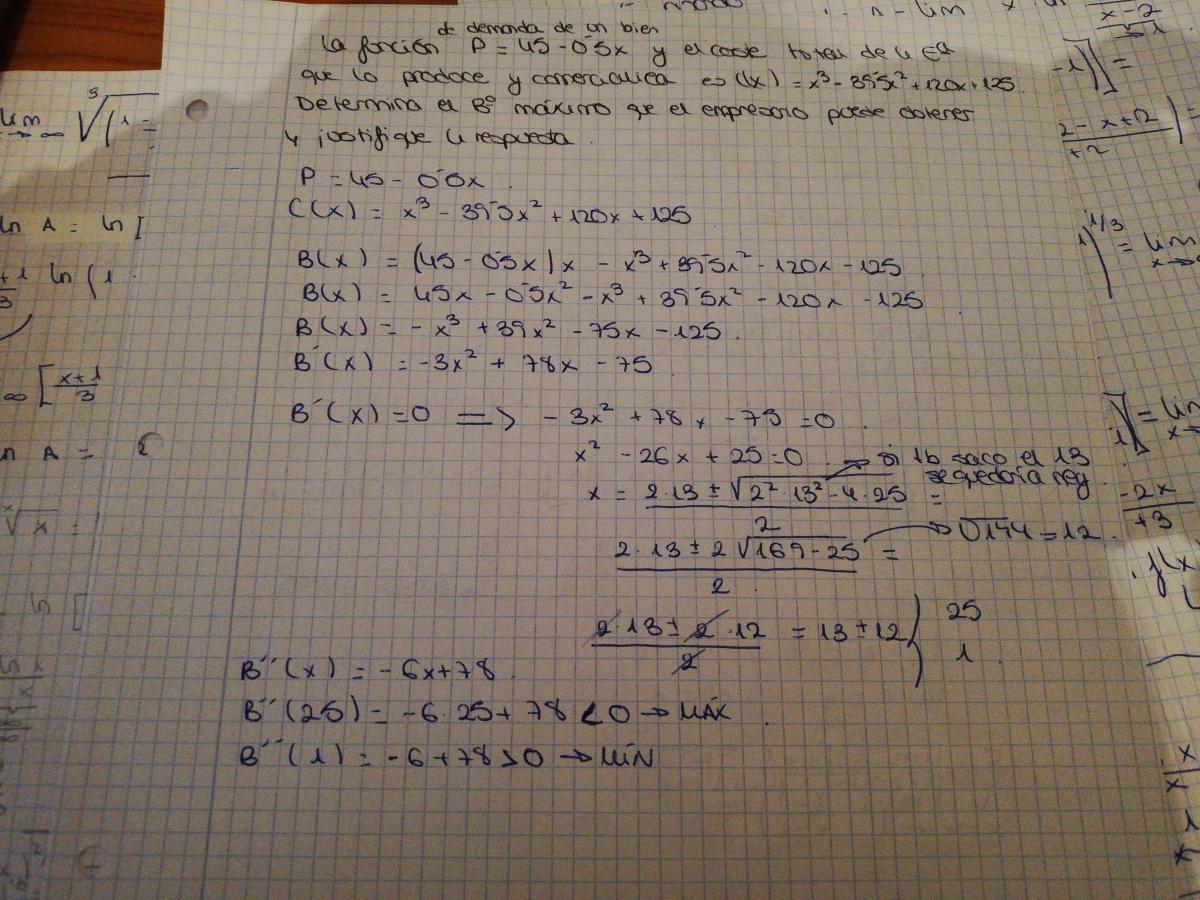 de demanda de un bien
La función P = 45 - 0'5x y el coste total de la Eª
que lo produce y comercializa es C(x) = x³ - 39'5x² + 120x + 125.
Determina el Bº máximo que el empresario puede obtener
y justifique la respuesta.
P = 45 - 0'5x.
C(x) = x³ - 39'5x² + 120x + 125
B(x) = (45 - 0'5x)x - x³ + 39'5x² - 120x - 125.
B(x) = 45x - 0'5x² - x³ + 39'5x² - 120x - 125
B(x) = - x³ + 39x² - 75x - 125.
B´(x) = -3x² + 78x - 75
B´(x) = 0 => - 3x² + 78x - 75 = 0.
x² - 26x + 25 = 0. → si lo saco el 13
se quedaría neg.
x = 2·13 ± √2²·13² - 4·25 =
2
2·13 ± 2√169 - 25 = → √144 = 12.
2
2·13 ± 2·12 = 13 ± 12 } 25
2
1.
B´´(x) = - 6x + 78.
B´´(25) = -6·25 + 78 < 0 → MÁX.
B´´(1) = - 6 + 78 > 0 → MÍN
lim
x→∞ ³√(1 =
ln A = ln [
+1 ln (1
3
∞ [x+1
3
n A = 2
ˣ√x =
n - lim
x-2
-1)] =
2 - x + 2) =
+2
1)^1/3 = lim
x→
1)] = lim
x→
-2x
+3
f(x)
x
x